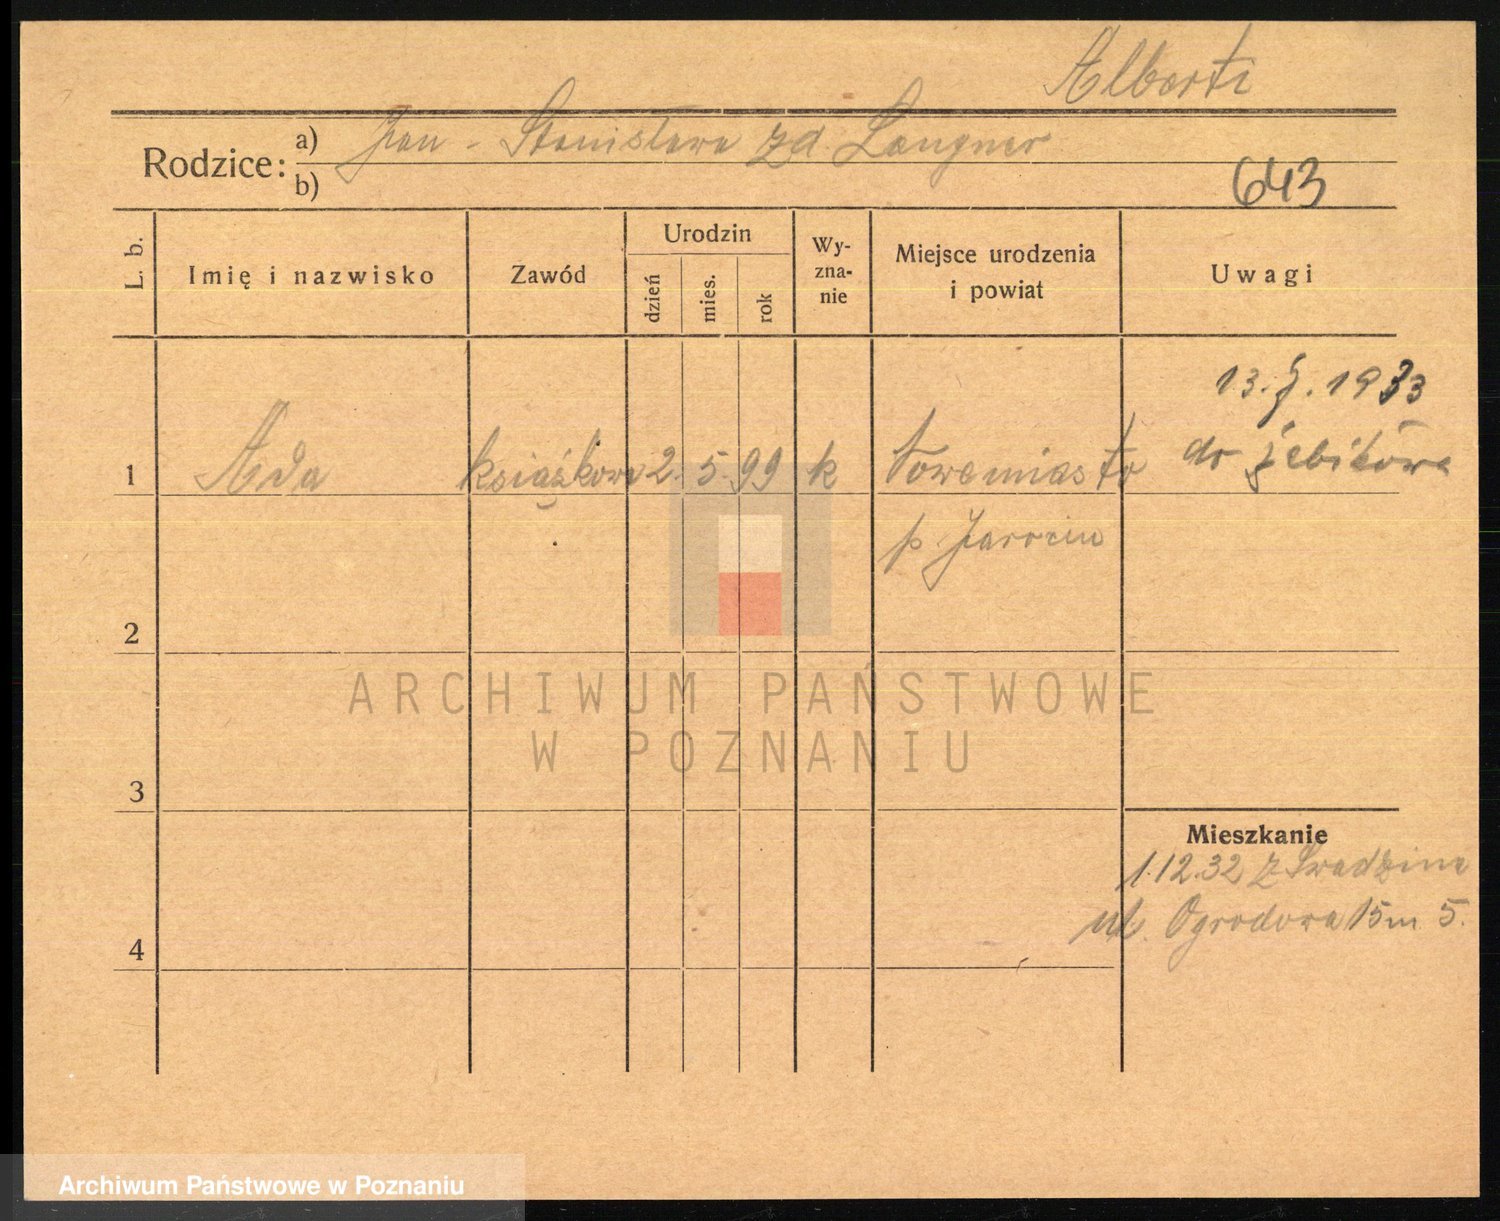 Alberti
Rodzice:
a) Jan - Stanisława zd Langner
b)
643
L. b.
Imię i nazwisko
Zawód
Urodzin
dzień
mies.
rok
Wy-
zna-
nie
Miejsce urodzenia
i powiat
Uwagi
13. 1933
1 Ada książkowa 2. 5. 99 k Nowemiasto do Żebikowa
p Jarocin
2
3
4
ARCHIWUM PAŃSTWOWE
W POZNANIU
Mieszkanie
1.12.32 z
ul. Ogrodowa 15 m 5.
Archiwum Państwowe w Poznaniu